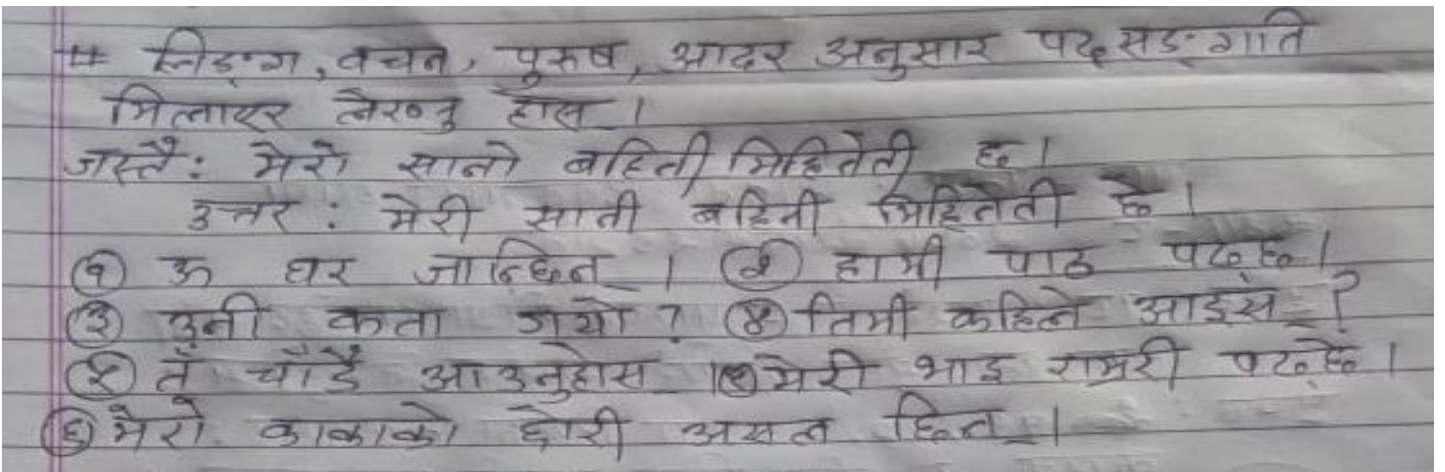 # लिङ्ग, वचन, पुरुष, आदर अनुसार पदसङ्गति
मिलाएर लेख्नु होस ।
जस्तै: मेरो सानो बहिनी मिहिनेती छ।
उत्तर : मेरी सानी बहिनी मिहिनेती छे।
(१) ऊ घर जान्छिन । (२) हामी पाठ पढ्छ।
(३) उनी कता गयो ? (४) तिमी कहिले आइस ?
(५) तँ चाँडै आउनुहोस । (७) मेरी भाइ रामरी पढ्छे।
(६) मेरो काकाको छोरी असल छिन ।